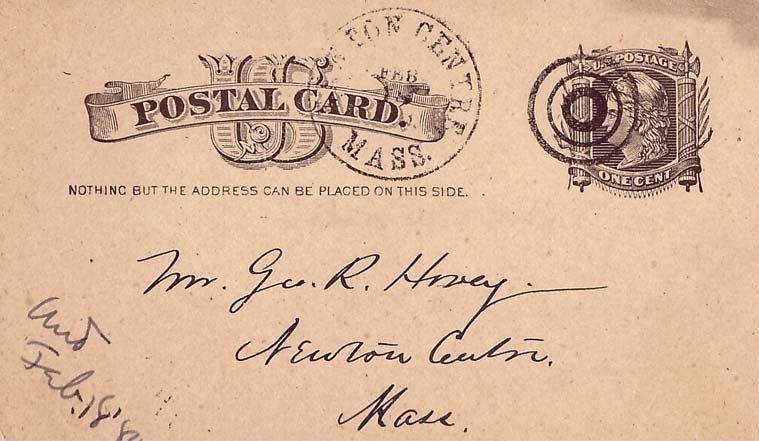 NEWTON CENTRE
FEB
MASS.
U.S. POSTAGE
POSTAL CARD.
US
ONE CENT
NOTHING BUT THE ADDRESS CAN BE PLACED ON THIS SIDE.
Mr. Geo. R. Hovey.
Newton Centre.
Mass.
Feb. 18